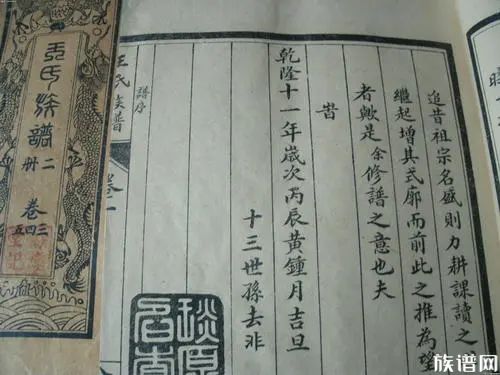 追昔祖宗名盛則力耕課讀之
繼起增其式廓而前此之推為望
者歟是余修譜之意也夫
旹
乾隆十一年歲次丙辰黃鍾月吉旦
十三世孫去非
譜序
王氏族譜
卷一
王氏族譜
二冊
卷三四五
族谱网